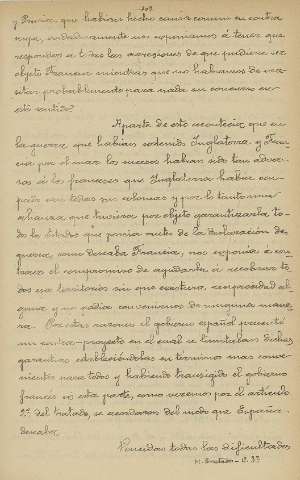 102
y Prusia, que habian hecho causa comun en contra
suya, indudablemente nos exponiamos á tener que
responder á todas las agresiones de que pudiera ser
objeto Francia mientras que no habiamos de nece-
sitar probablemente para nada su concurso en
este sentido.
Aparte de esto acontecia, que en
la guerra que habian sostenido Inglaterra y Fran-
cia por el mar los sucesos habian sido tan adver-
sos á los franceses que Inglaterra habia ocu-
pado casi todas sus colonias y por lo tanto una
alianza que tuviera por objeto garantizarla to-
dos los Estados que poseia antes de la declaracion de
guerra, como deseaba Francia, nos exponia á con-
traer el compromiso de ayudarla á recobrar to-
dos esos territorios sin que existiera reciprocidad al-
guna y no podia convenirnos de ninguna mane-
ra. Por estas razones el gobierno español presentó
un contra-proyecto en el cual se limitaban dichas
garantias estableciéndolas en términos mas conve-
nientes para todos y habiendo transigido el gobierno
francés en esta parte, como veremos por el artículo
2º del tratado, se acordaron del modo que España
deseaba.
Vencidas todas las dificultades